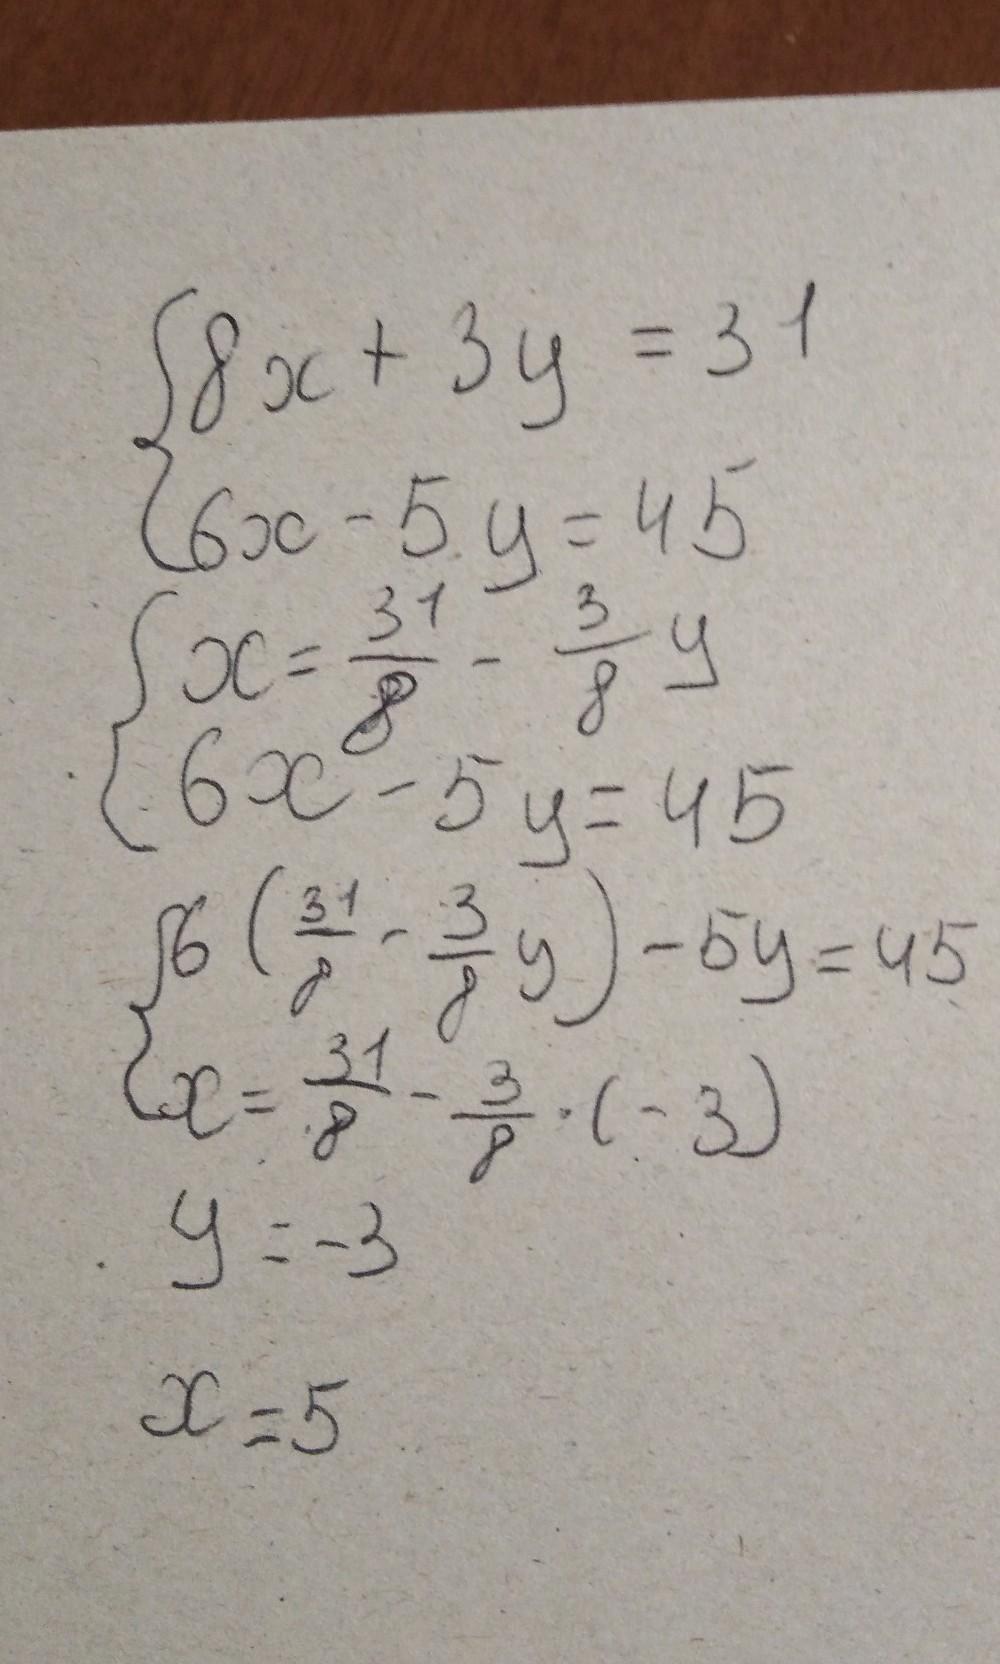 {8x + 3y = 31
{6x - 5y = 45
{x = 31/8 - 3/8 y
{6x - 5y = 45
{6(31/8 - 3/8 y) - 5y = 45
{x = 31/8 - 3/8 · (-3)
y = -3
x = 5